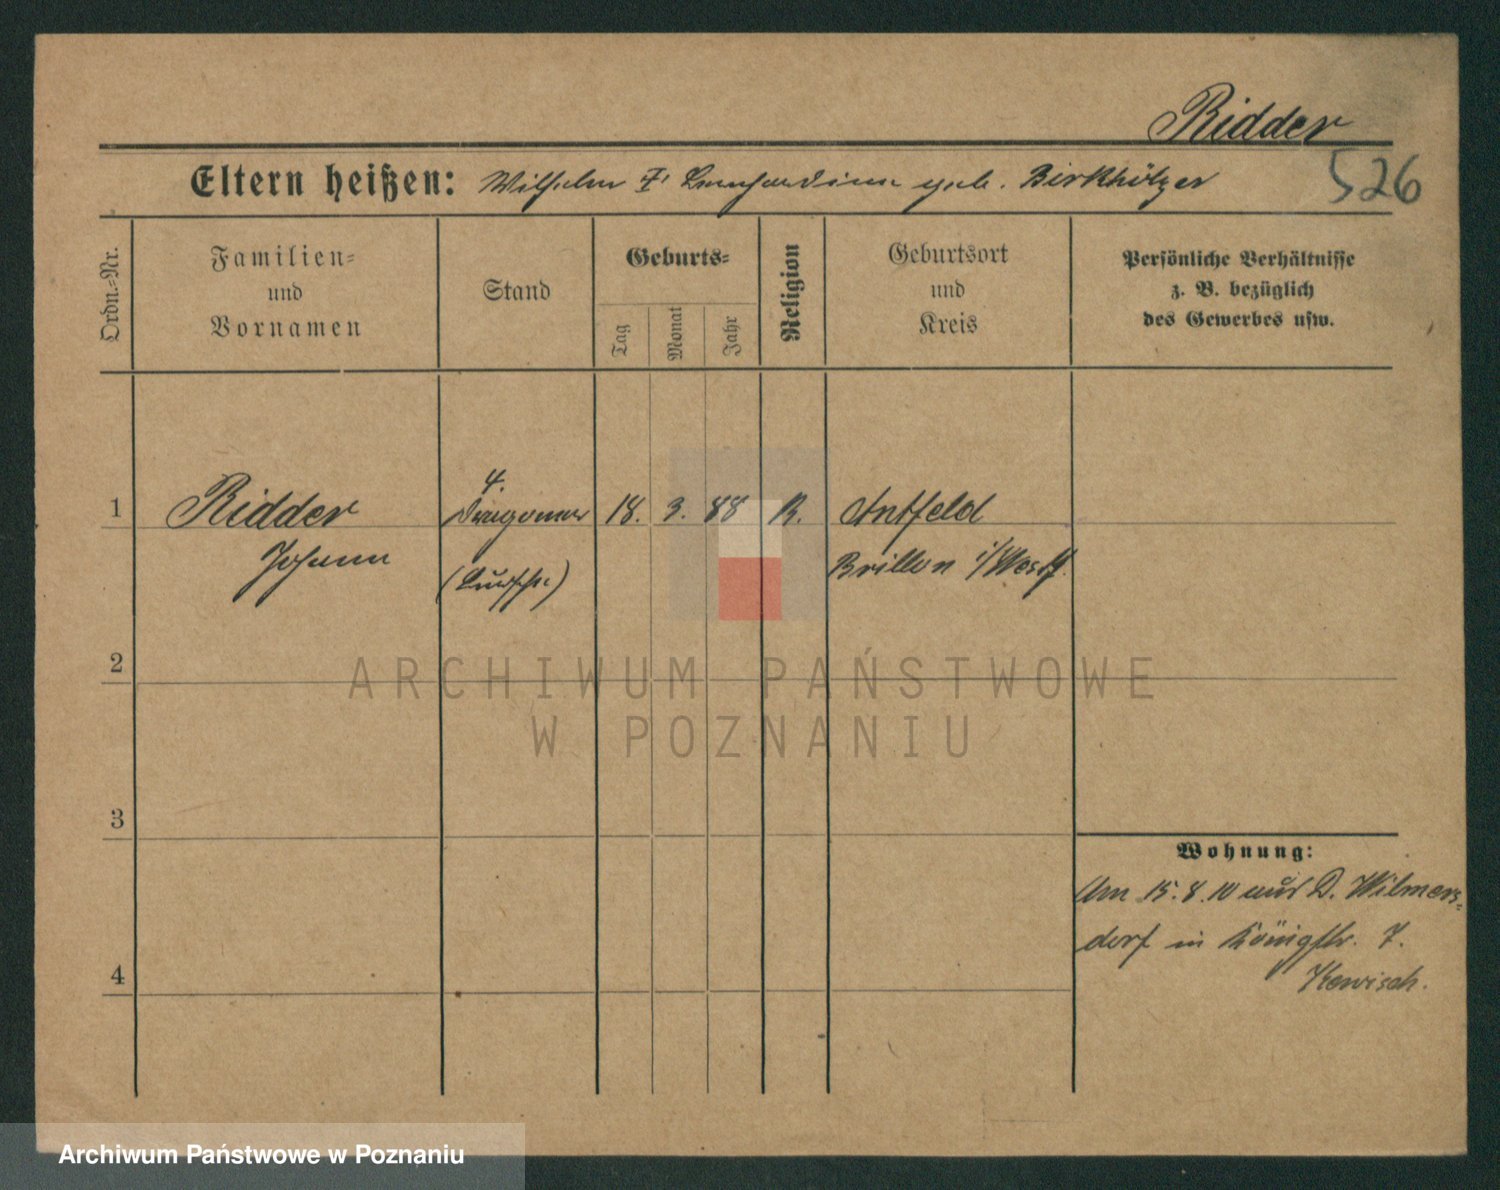 Ridder
526
Eltern heißen: Wilhelm & Bernhardine geb. Birkhölzer
Ordn.=Nr.
Familien=
und
Vornamen
Stand
Geburts=
Tag
Monat
Jahr
Religion
Geburtsort
und
Kreis
Persönliche Verhältnisse
z. B. bezüglich
des Gewerbes usw.
1
Ridder
Johann
4.
18. 3. 88 R.
Antfeld
Brillon i/Westf.
2
3
4
Wohnung:
Am 15.8.10 aus D. Wilmers=
dorf in Königstr. 7.
Kewisch.
ARCHIWUM PAŃSTWOWE
W POZNANIU
Archiwum Państwowe w Poznaniu